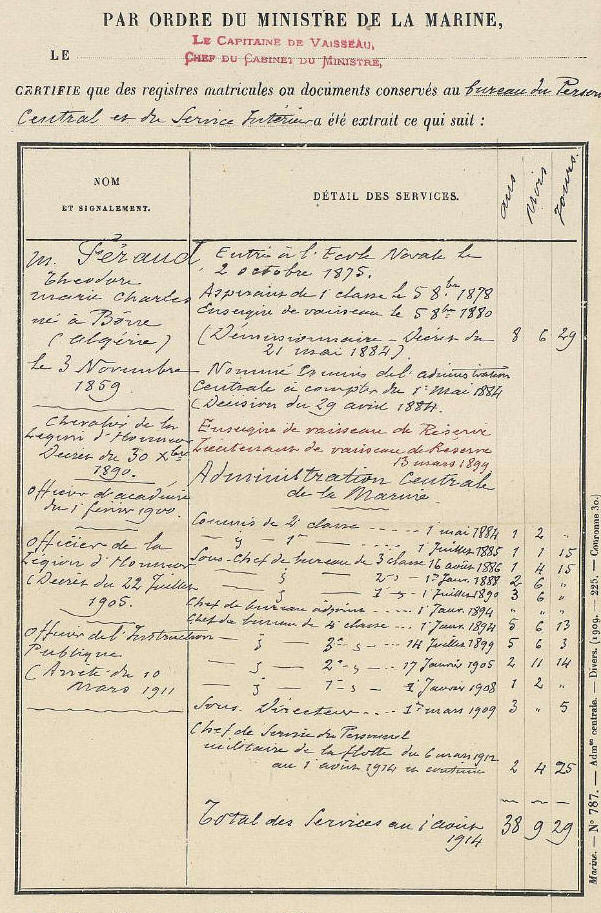 PAR ORDRE DU MINISTRE DE LA MARINE,
LE CAPITAINE DE VAISSEAU,
CHEF DU CABINET DU MINISTRE,
LE
CERTIFIE que des registres matricules ou documents conservés au bureau du Person
Central et du Service Intérieur a été extrait ce qui suit :
NOM
ET SIGNALEMENT.
DÉTAIL DES SERVICES.
ans
mois
jours.
M. Féraud,
Théodore
Marie Charles
né à Bône
(Algérie)
le 3 Novembre
1859
Chevalier de la
Légion d'Honneur
Décret du 30 Xbre
1890.
Officier d'académie
du 1er février 1900.
Officier de la
Légion d'Honneur
(Décret du 22 Juillet
1905.
Officier de l'Instruction
Publique
(Arrêté du 10
Mars 1911
Entré à l'Ecole Navale le
2 octobre 1875.
Aspirant de 1e classe le 5 8bre 1878
Enseigne de vaisseau le 5 8bre 1880
(Démissionnaire - Décret du
21 mai 1884) 8 6 29
Nommé Commis de l'administration
Centrale à compter du 1er Mai 1884
(Décision du 29 avril 1884.
Enseigne de vaisseau de Réserve
Lieutenant de vaisseau de Réserve
13 mars 1899
Administration Centrale
de la Marine
Commis de 2e classe ----- 1 mai 1884 1 2 "
— " — 1e ---- 1 Juillet 1885 1 1 15
Sous-Chef de bureau de 3e classe 16 août 1886 1 4 15
— " — 2e " - 1er Janv. 1888 2 6 "
— " — 1e " - 1 Juillet 1890 3 6 "
Chef de bureau adjoint --- 1 Janv. 1894 " " "
Chef de bureau de 4e classe --- 1 Janv. 1894 5 6 13
— " — 3e " - 14 Juillet 1899 5 6 3
— " — 2e " - 17 Janvier 1905 2 11 14
— " — 1e " - 1 Janvier 1908 1 2 "
Sous. Directeur ---- 1er mars 1909 3 " 5
Chef de Service du Personnel
militaire de la flotte du 6 mars 1912
au 1 août 1914 et continue 2 4 25
Total des Services au 1 août
1914 38 9 29
Marine. — N° 787. — Admon centrale. — Divers. (1909. — 225. — Couronne 30.)